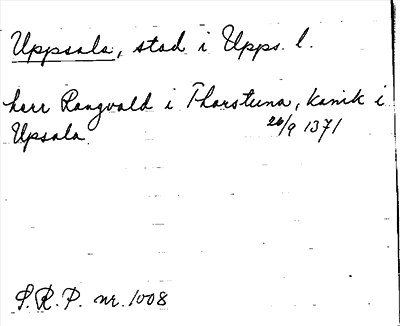 Uppsala, stad i Upps. l.
herr Rangvald i Thorstuna, kanik i
Upsala.
26/9 1371
S.R.P. nr. 1008